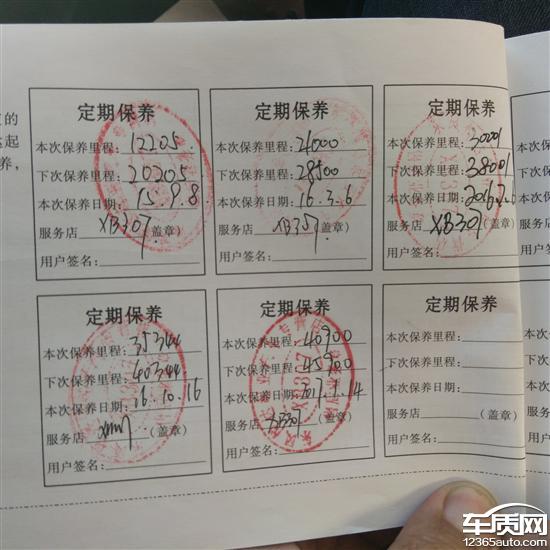 的
起
养，
定期保养
本次保养里程：12205
下次保养里程：20205
本次保养日期：15.9.8
服务店 XB307 （盖章）
用户签名：
定期保养
本次保养里程：21000
下次保养里程：28500
本次保养日期：16.3.6
服务店 XB307 （盖章）
用户签名：
定期保养
本次保养里程：30001
下次保养里程：38001
本次保养日期：2016.7.
服务店 XB307 （盖章）
用户签名：
定期保养
本次保养里程：35344
下次保养里程：40344
本次保养日期：16.10.16
服务店 （盖章）
用户签名：
定期保养
本次保养里程：40900
下次保养里程：45900
本次保养日期：2017.1.14
服务店 XB307 （盖章）
用户签名：
定期保养
本次保养里程：
下次保养里程：
本次保养日期：
服务店 （盖章）
用户签名：
车质网
12365auto.com